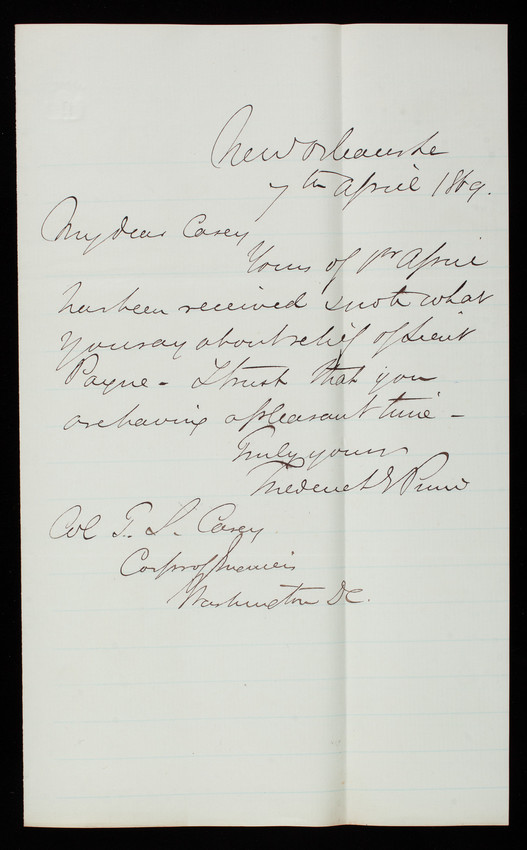 New Orleans La
7th April 1869.
My dear Casey
Yours of 1st April
has been received & note what
you say about relief of Lieut
Payne - I trust that you
are having a pleasant time -
Truly yours
Frederick E Prime
Col T. L. Casey
Corps of Engineers
Washington DC.